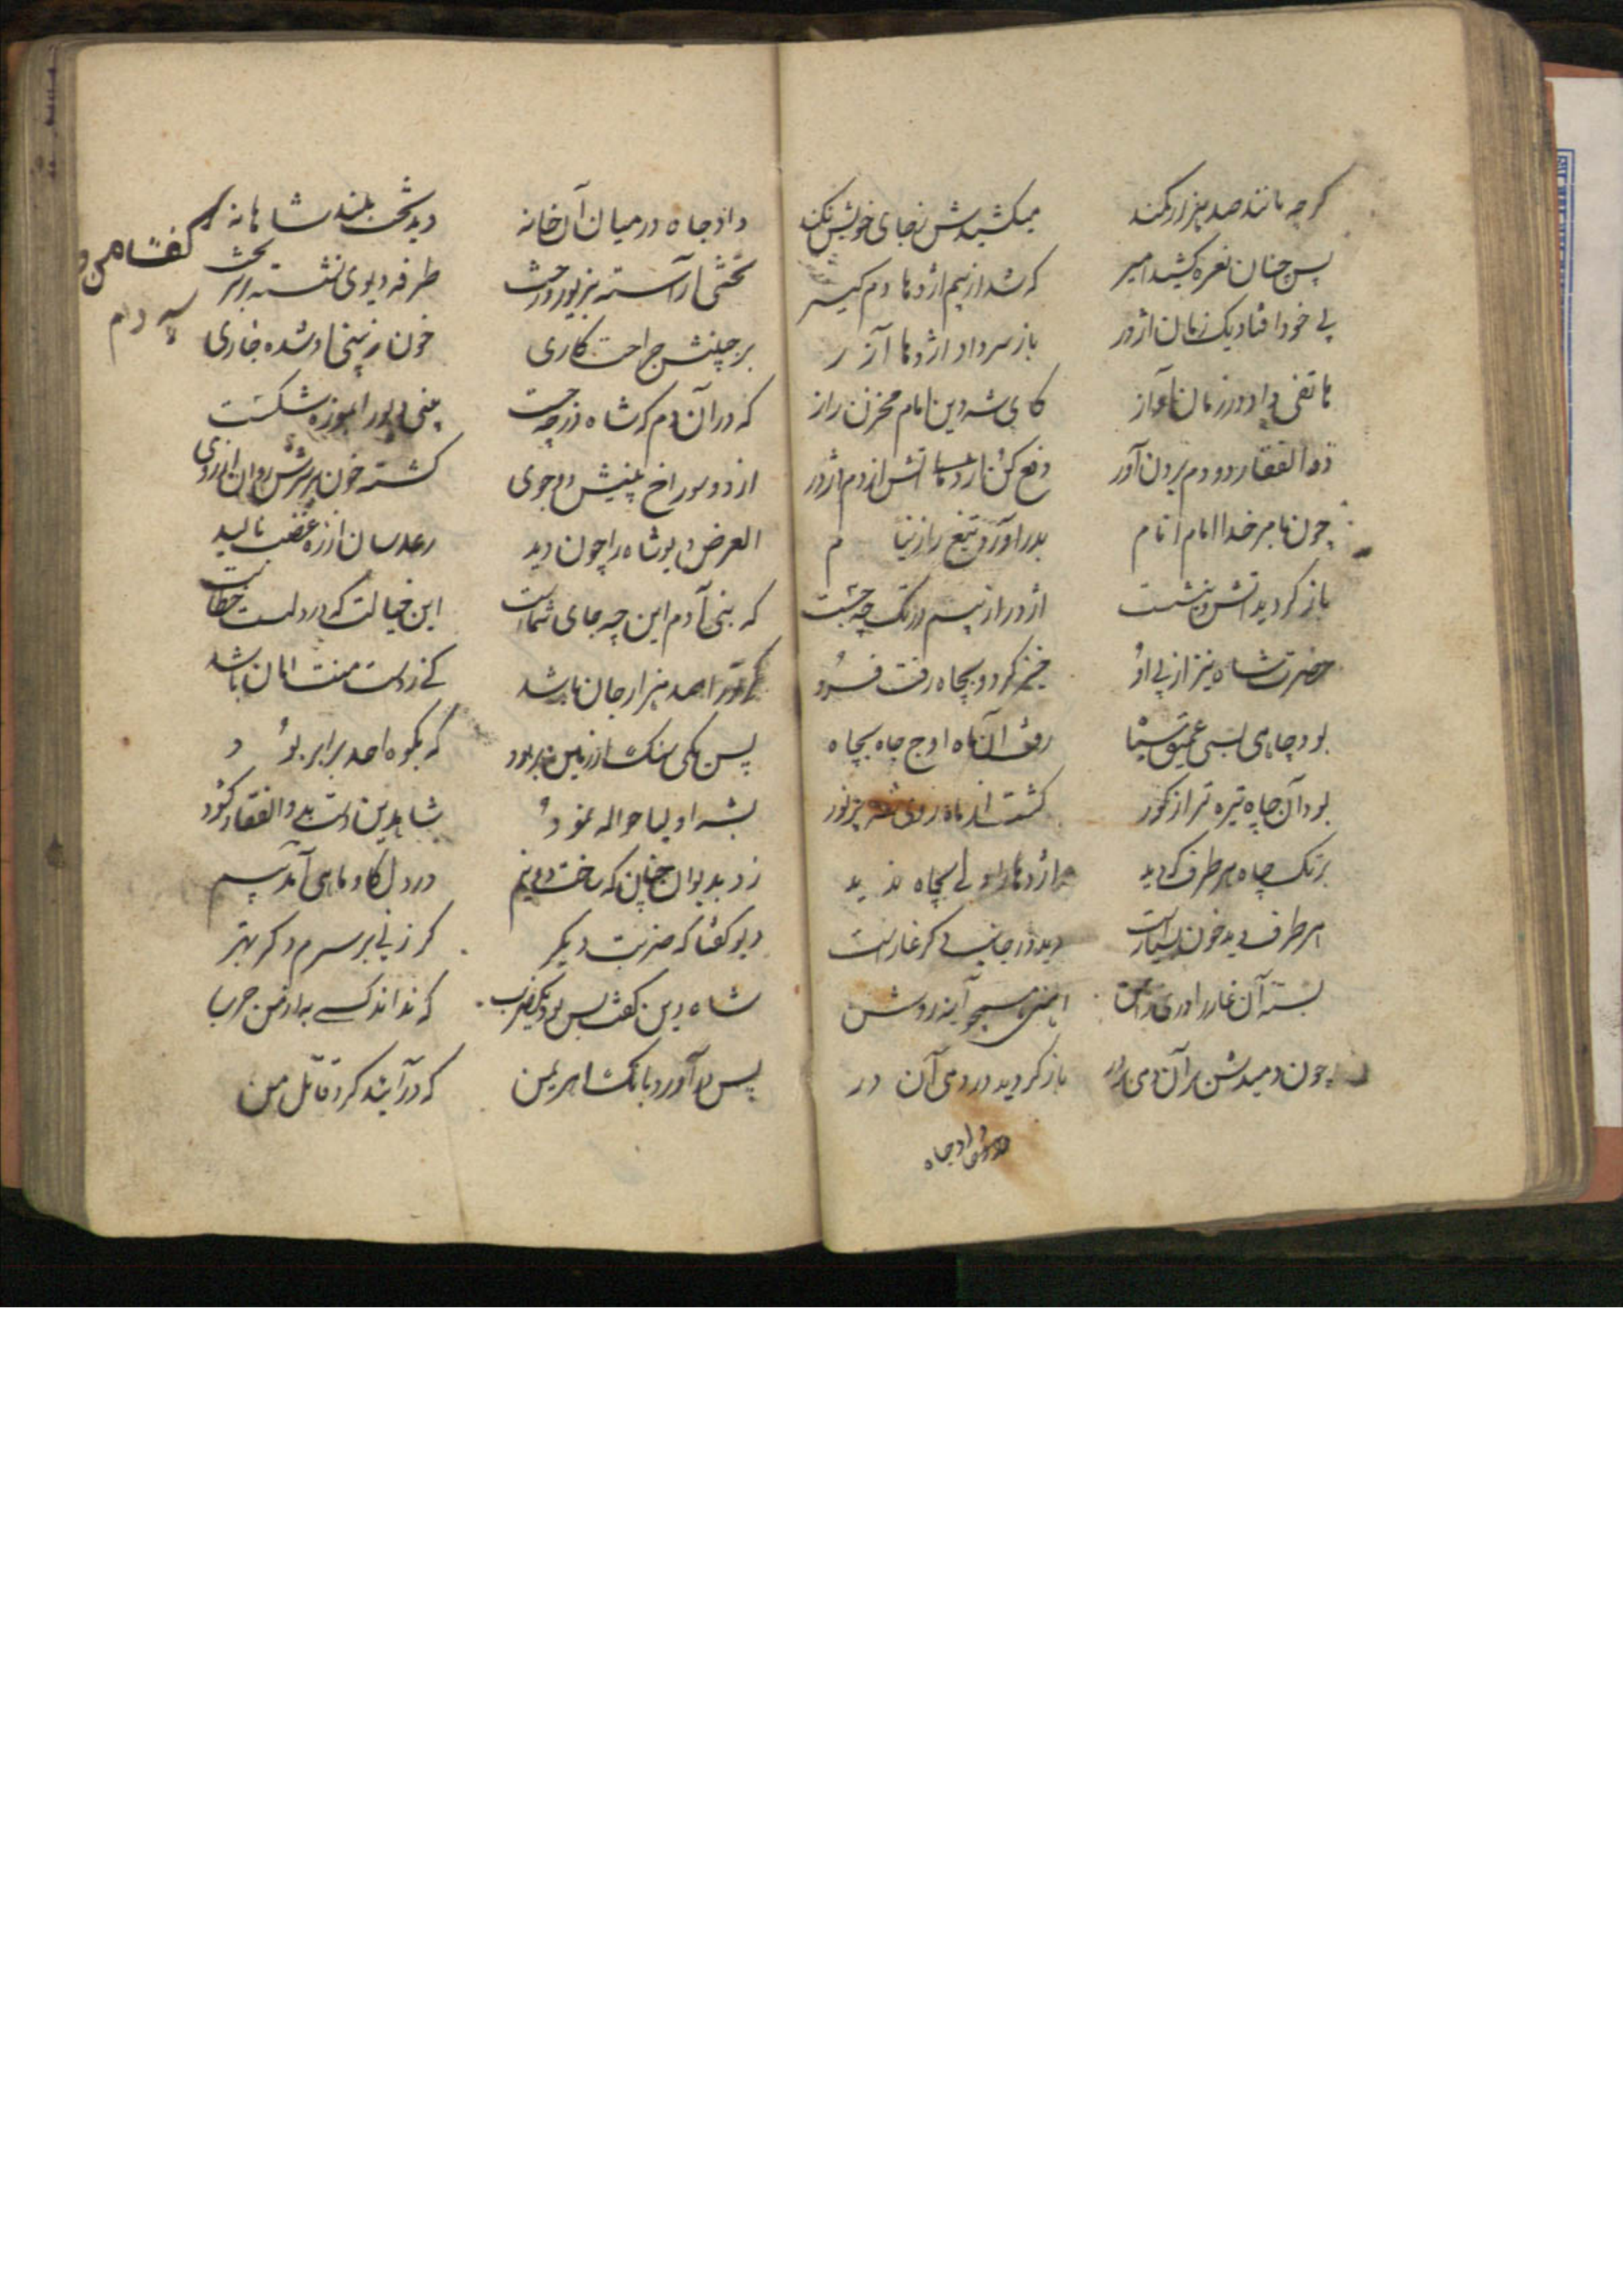 کرچه مانند صد هزار کمند میکشیدش ز جای خویش نکند
پس چنان نعره کشید امیر که شد از بیم اژدها دم کیر
بی خود افتاد یک زمان اژدر باز سر داد اژدها آزر
هاتفی داد در زمان آواز کای شه دین امام مخزن راز
ذو الفقار دو دم برون آور دفع کن اژدها آتش از دم اژدر
چون نام خدا امام انام بدر آورد تیغ را ز نیام
باز کردید آتش و بنشست اژدر از بیم در تک چه جست
حضرت شاه نیز از پی او خیز کرد و بچاه رفت فرو
بود چاهی بسی عمیق سیاه رفت آن ماه اوج چاه بچاه
بود آن چاه تیره تر از کور کشت از ماه روی شه پر نور
بر تک چاه هر طرف که دید اژدها را ولی بچاه ندید
هر طرف دید خون بسیارست دید در جانب دکر غارست
بسته آن غار را دری ز آهن آهنی همچو آینه روشن
چون دمیدش بر آن دمی باز کردید در دمی آن در
داد جاه
داد جاه در میان آن خانه دید تخت بلند شاهانه
تختی آراسته بزیور و رخت طرفه دیوی نشسته بر سر تخت
بر جبینش جراحت کاری خون ز بینی او شده جاری
که در آن دم که شاه در چه جست بینی دیو را بموزه شکست
از دو سوراخ بینیش دو جوی کشته خون بر سرش روان از روی
الغرض دیو شاه را چون دید رعد سان از ره غضب نالید
که بنی آدم این چه جای شماست این خیالت که در دلست خطاست
کر ترا صد هزار جان باشد کی ز دست منت امان باشد
پس یکی سنک از زمین بربود که بکوه احد برابر بود
بشه اولیا حواله نمود شاه دین دست بذو الفقار کشود
زد بدیو آن چنان که ساخت دو نیم در دل کاو ماهی آمد بیم
دیو کفتا که ضربت دیکر کر زنی بر سرم دکر بهتر
شاه دین کفت بس بود یک ضرب که نداند کسی به از من حرب
پس برآورد بانک اهریمن که در آیند کرد قاتل من